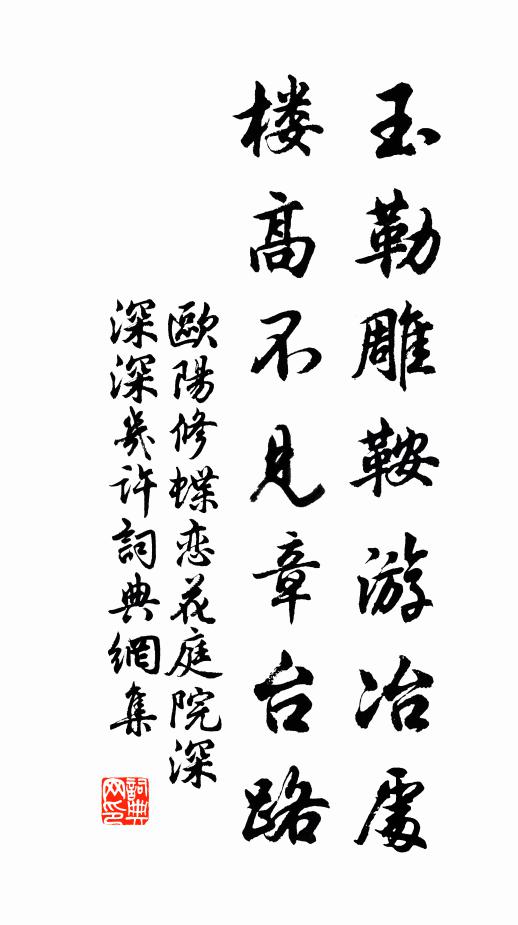 玉勒雕鞍游冶處
楼高不见章台路
歐陽修蝶恋花庭院深
深深幾许詞典網集
詞典網印